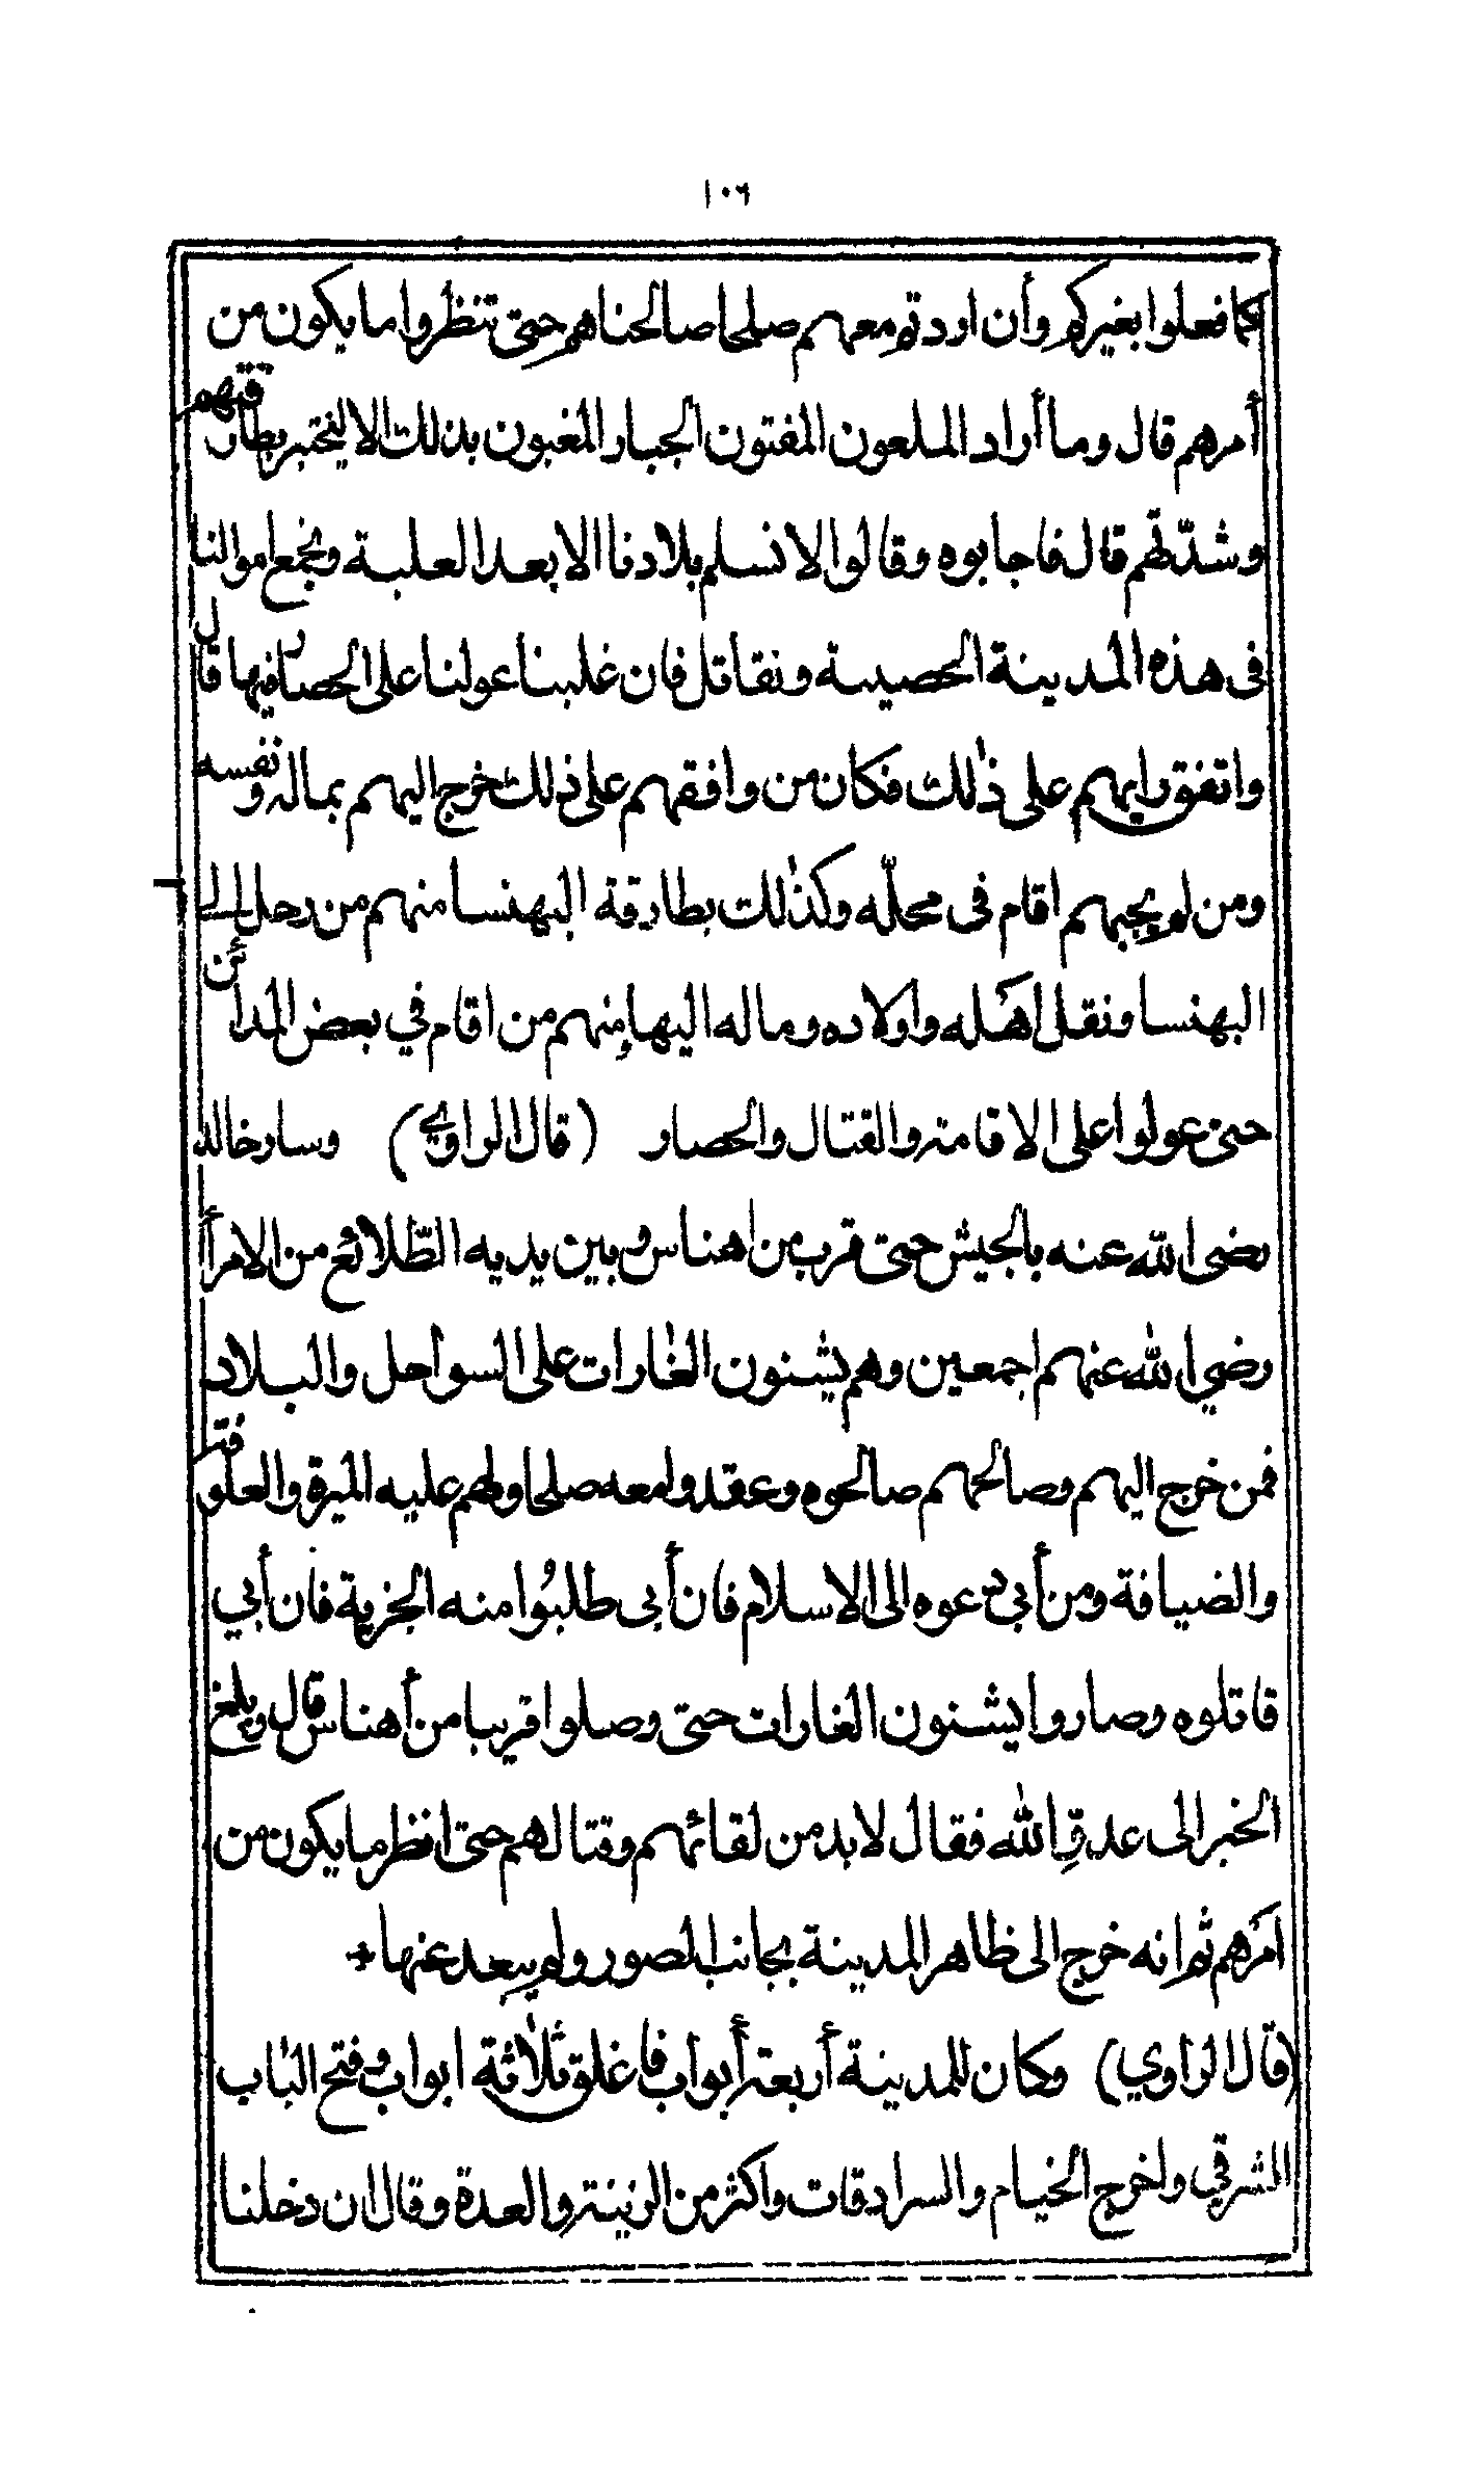 ١٠٦
كما فعلوا بغيركم وأن اردتم معهم صلحا صالحناهم حتى تنظروا ما يكون من
أمرهم قال وما أراد الملعون المفتون الجبار المغبون بذلك الا ليختبر بطارقتهم
وشدّتهم قال فاجابوه وقالوا لا نسلم بلادنا الا بعد الغلبة ونجمع اموالنا
فى هذه المدينة الحصينة ونقاتل فان غلبنا عولنا على الحصار فيها قال
واتفق رايهم على ذٰلك فكان من وافقهم على ذلك خرج اليهم بماله ونفسه
ومن لم يجبهم اقام فى محلّه وكذٰلك بطارقة البهنسا منهم من رحل الى
البهنسا ونقل اهَله واولاده وماله اليها ومنهم من اقام في بعض المدائن
حتى عولوا على الاقامة والقتال والحصار (قال الراوي) وسار خالد
رضى الله عنه بالجيش حتى قرب من اهناس وبين يديه الطّلائع من الامرأ
رضي الله عنهم اجمعين وهم يشنون الغارات على السواحل والبلاد
فمن خرج اليهم وصالحهم صالحوه وعقدوا معه صلحا ولهم عليه الميرة والعلوفة
والضيافة ومن أبى دعوه الى الاسلام فان أبى طلبُوا منه الجزية فان أبي
قاتلوه وصاروا يشنون الغارات حتى وصلوا قريبا من أهناس قال وبلغ
الخبر الى عدوِّ الله فقال لا بد من لقائهم وقتالهم حتى انظر ما يكون من
امرَهم ثم انه خرج الى ظاهر المدينة بجانب الصور ولم يبعد عنها*
(قال الراوي) وكان للمدينة أربعة أبواب فاغلق ثلاثة ابواب وفتح الباب
الشرقي واخرج الخيام والسرادقات واكثر من الزينة والعدة وقال ان دخلنا